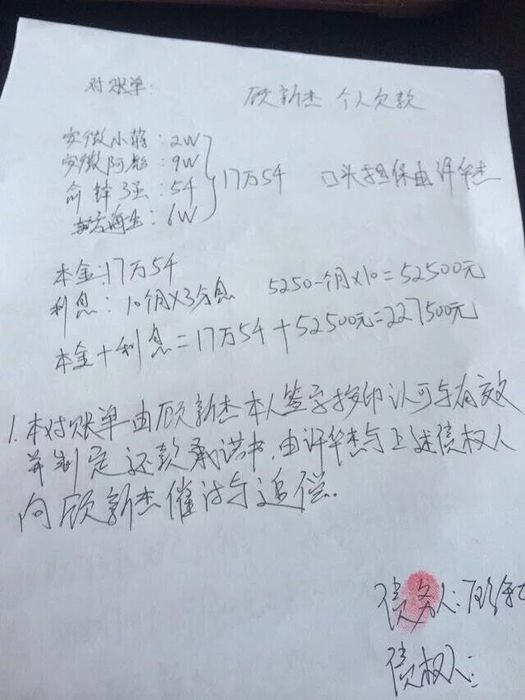 对账单: 顾新杰 个人欠款
安徽小蒋: 2W
安徽阿彪: 9W
俞锋 强: 5千
6W
17万5千 口头担保由许华杰
本金: 17万5千
利息: 10个月×3分息 5250一个月×10=52500元
本金+利息=17万5千+52500元=227500元
1. 本对账单由顾新杰本人签字按印认可与有效
并制定还款承诺书,由许华杰与上述债权人
向顾新杰催讨与追偿.
债务人: 顾新杰
债权人: